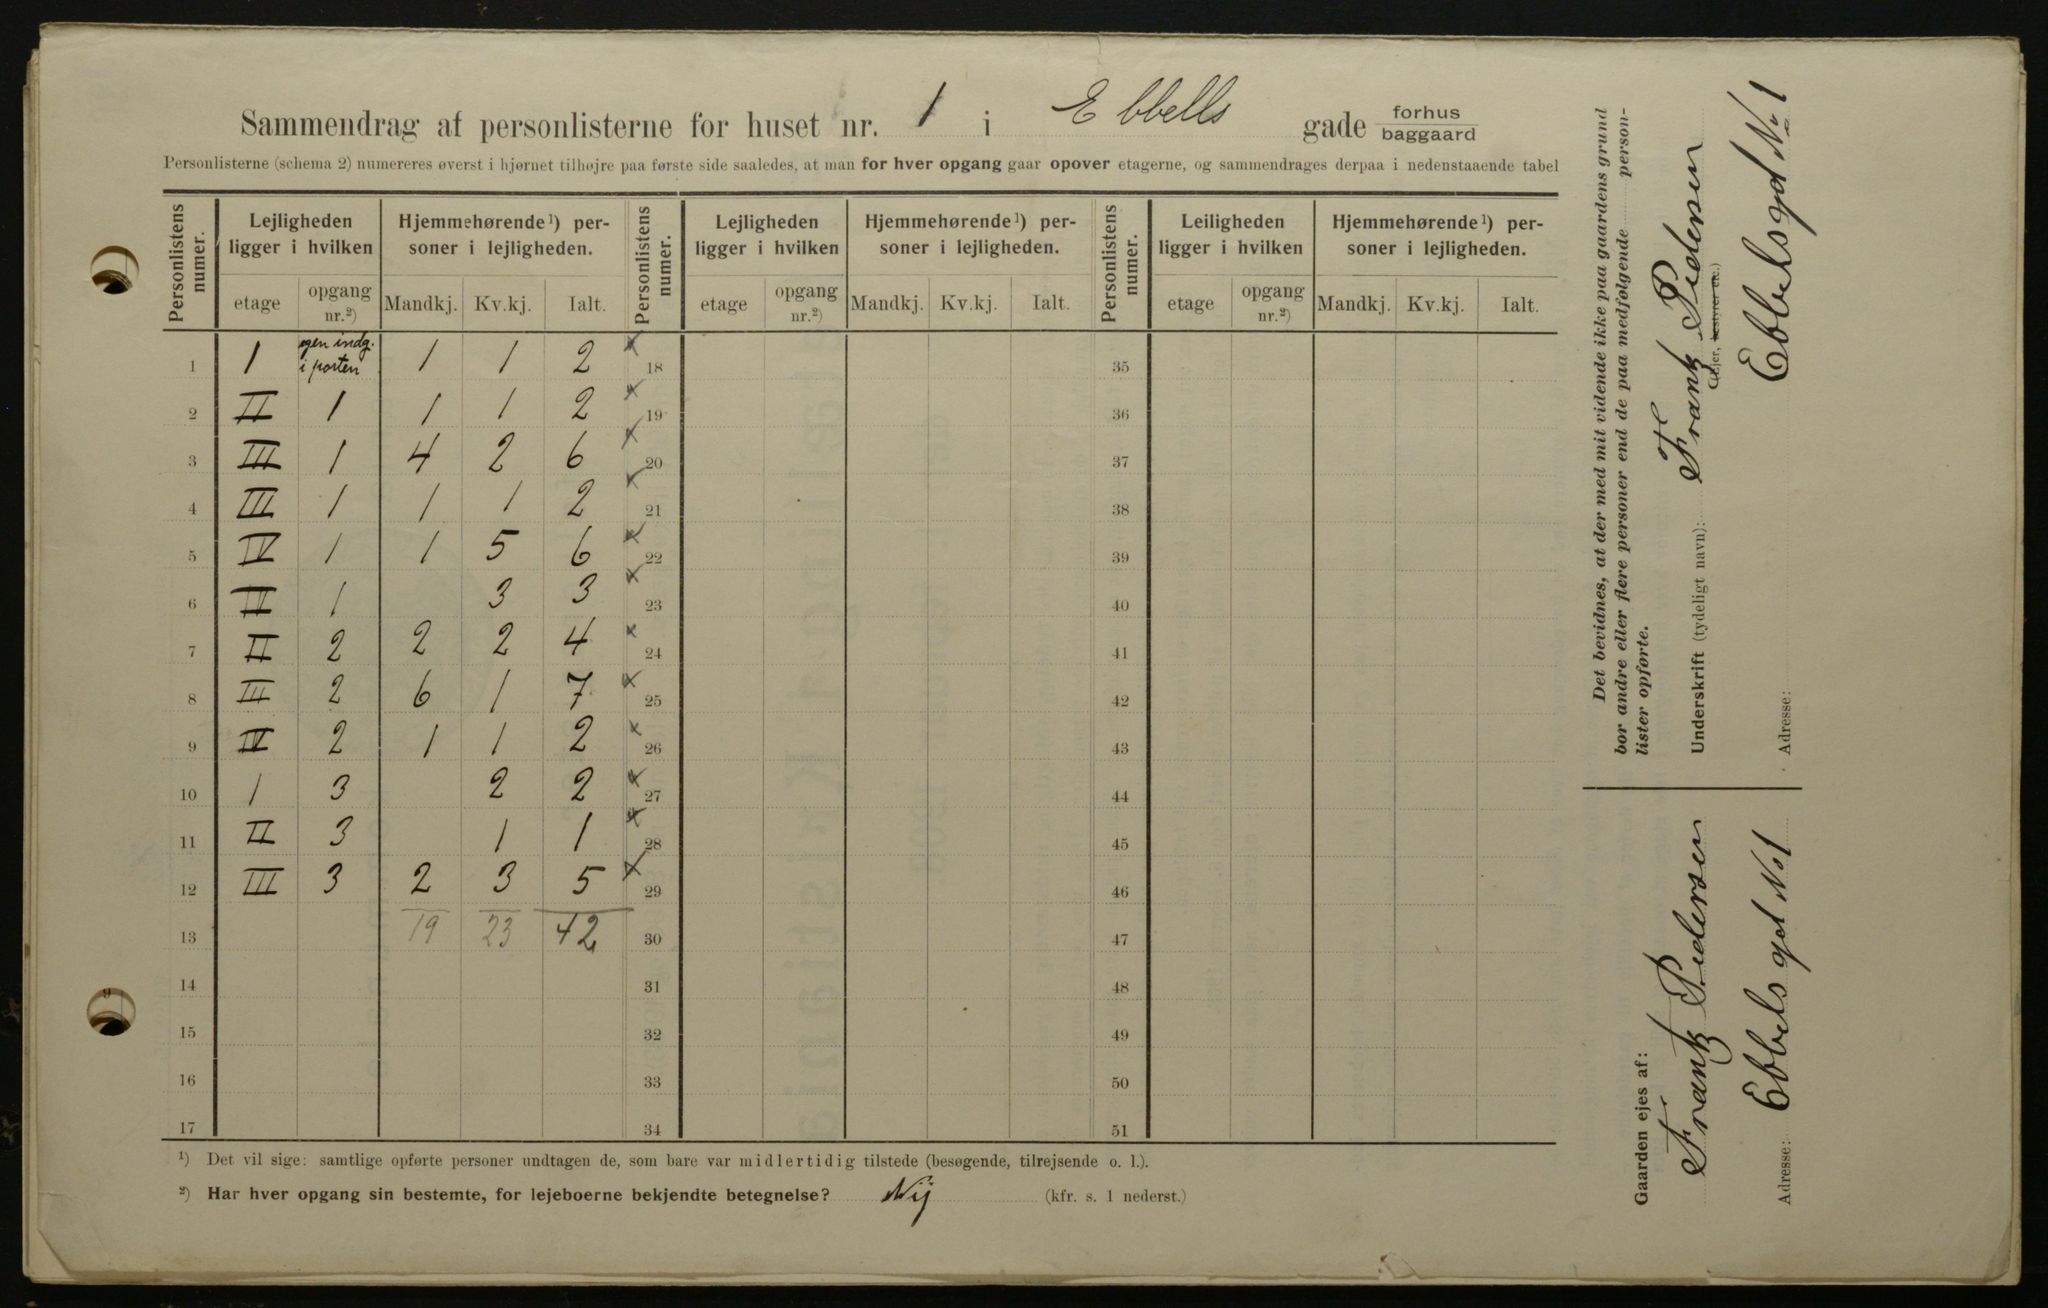 Sammendrag af personlisterne for huset nr. 1 i Ebbells gade forhus baggaard
Personlisterne (schema 2) numereres øverst i hjørnet tilhøjre paa første side saaledes, at man for hver opgang gaar opover etagerne, og sammendrages derpaa i nedenstaaende tabel
Personlistens numer. Lejligheden ligger i hvilken Hjemmehørende ¹) personer i lejligheden. Personlistens numer. Lejligheden ligger i hvilken Hjemmehørende ¹) personer i lejligheden. Personlistens numer. Leiligheden ligger i hvilken Hjemmehørende ¹) personer i lejligheden.
etage opgang nr.²) Mandkj. Kv.kj. Ialt. etage opgang nr.²) Mandkj. Kv.kj. Ialt. etage opgang nr.²) Mandkj. Kv.kj. Ialt.
1 I egen indg. i porten 1 1 2 x 18 35
2 II 1 1 1 2 x 19 36
3 III 1 4 2 6 x 20 37
4 III 1 1 1 2 x 21 38
5 IV 1 1 5 6 x 22 39
6 1 3 3 x 23 40
7 II 2 2 2 4 x 24 41
8 III 2 6 1 7 x 25 42
9 IV 2 1 1 2 x 26 43
10 1 3 2 2 x 27 44
11 II 3 1 1 x 28 45
12 III 3 2 3 5 x 29 46
13 19 23 42 30 47
14 31 48
15 32 49
16 33 50
17 34 51
¹) Det vil sige: samtlige opførte personer undtagen de, som bare var midlertidig tilstede (besøgende, tilrejsende o. l.).
²) Har hver opgang sin bestemte, for lejeboerne bekjendte betegnelse? Nij (kfr. s. 1 nederst.)
Det bevidnes, at der med mit vidende ikke paa gaardens grund
bor andre eller flere personer end de paa medfølgende person-
lister opførte.
Underskrift (tydeligt navn): Frantz Pedersen
(Ejer, bestyrer etc.)
Adresse: Ebbelsgd No 1
Gaarden ejes af:
Frantz Pedersen
Adresse: Ebbels gd No 1